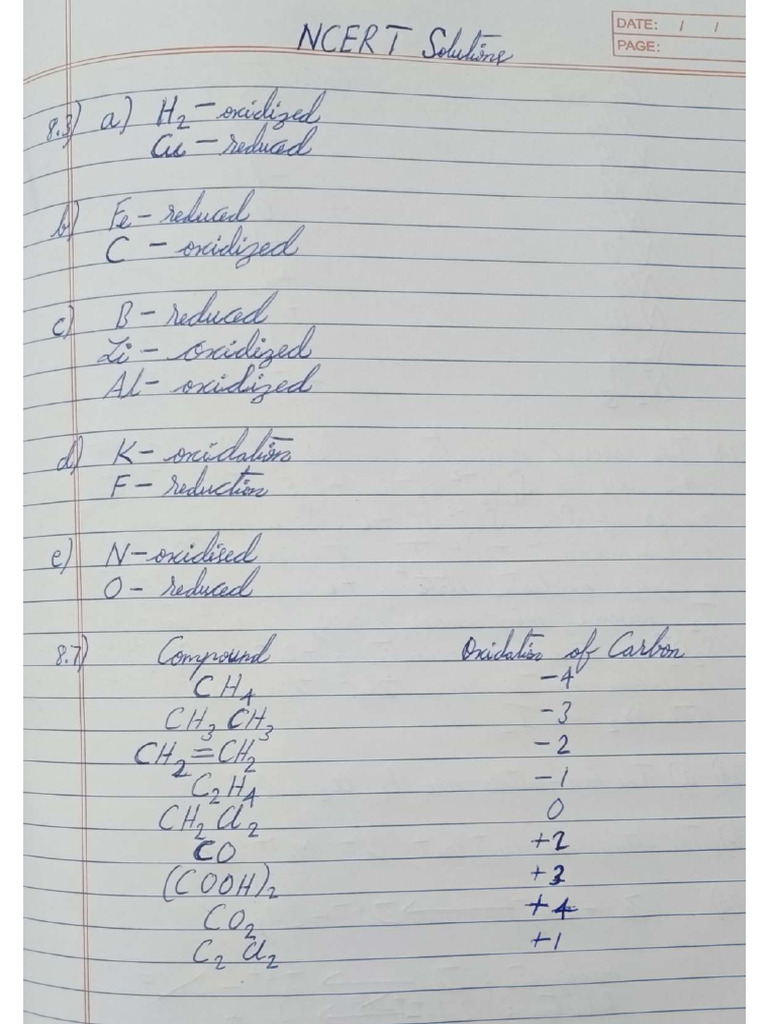 NCERT Solutions
DATE: / /
PAGE:
8.3) a) H₂ – oxidized
Cu – reduced
b) Fe – reduced
C – oxidized
c) B – reduced
Li – oxidized
Al – oxidized
d) K – oxidation
F – reduction
e) N – oxidised
O – reduced
8.7) Compound Oxidation of Carbon
CH₄ -4
CH₃ CH₃ -3
CH₂=CH₂ -2
C₂H₄ -1
CH₂ Cl₂ 0
CO +2
(COOH)₂ +3
CO₂ +4
C₂ Cl₂ +1